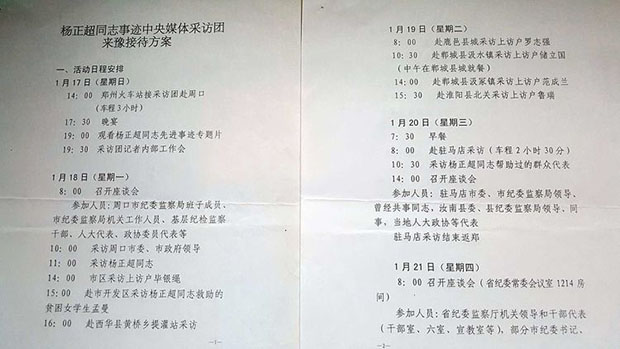 杨正超同志事迹中央媒体采访团
来豫接待方案
一、活动日程安排
1月17日（星期日）
14：00 郑州火车站接采访团赴周口
（车程3小时）
17：30 晚宴
19：00 观看杨正超同志先进事迹专题片
19：30 采访团记者内部工作会
1月18日（星期一）
8：00 召开座谈会
参加人员：周口市纪委监察局班子成员、
市纪委监察局机关工作人员、基层纪检监察
干部、人大代表、政协委员代表等
10：00 采访周口市委、市政府领导
11：00 采访杨正超同志
14：00 市区采访上访户毕银绳
15：00 赴市开发区采访杨正超同志救助的
贫困女学生孟曼
16：00 赴西华县黄桥乡提灌站采访
—1—
1月19日（星期二）
8：00 赴鹿邑县城采访上访户罗志强
10：30 赴郸城县汲水镇采访上访户储立国
（中午在郸城县城就餐）
14：00 赴郸城县汲冢镇采访上访户范成兰
15：30 赴淮阳县北关采访上访户鲁瑞
1月20日（星期三）
7：30 早餐
8：00 赴驻马店采访（车程2小时30分）
10：30 采访杨正超同志帮助过的群众代表
14：00 召开座谈会
参加人员：驻马店市委、市纪委监察局领导、
曾经共事同志，汝南县委、县纪委监察局领导、同
事，当地人大政协等代表
驻马店采访结束返郑
1月21日（星期四）
8：00 召开座谈会（省纪委常委会议室1214房
间）
参加人员：省纪委监察厅机关领导和干部代表
（干部室、六室、宣教室等），部分市纪委书记、
—2—